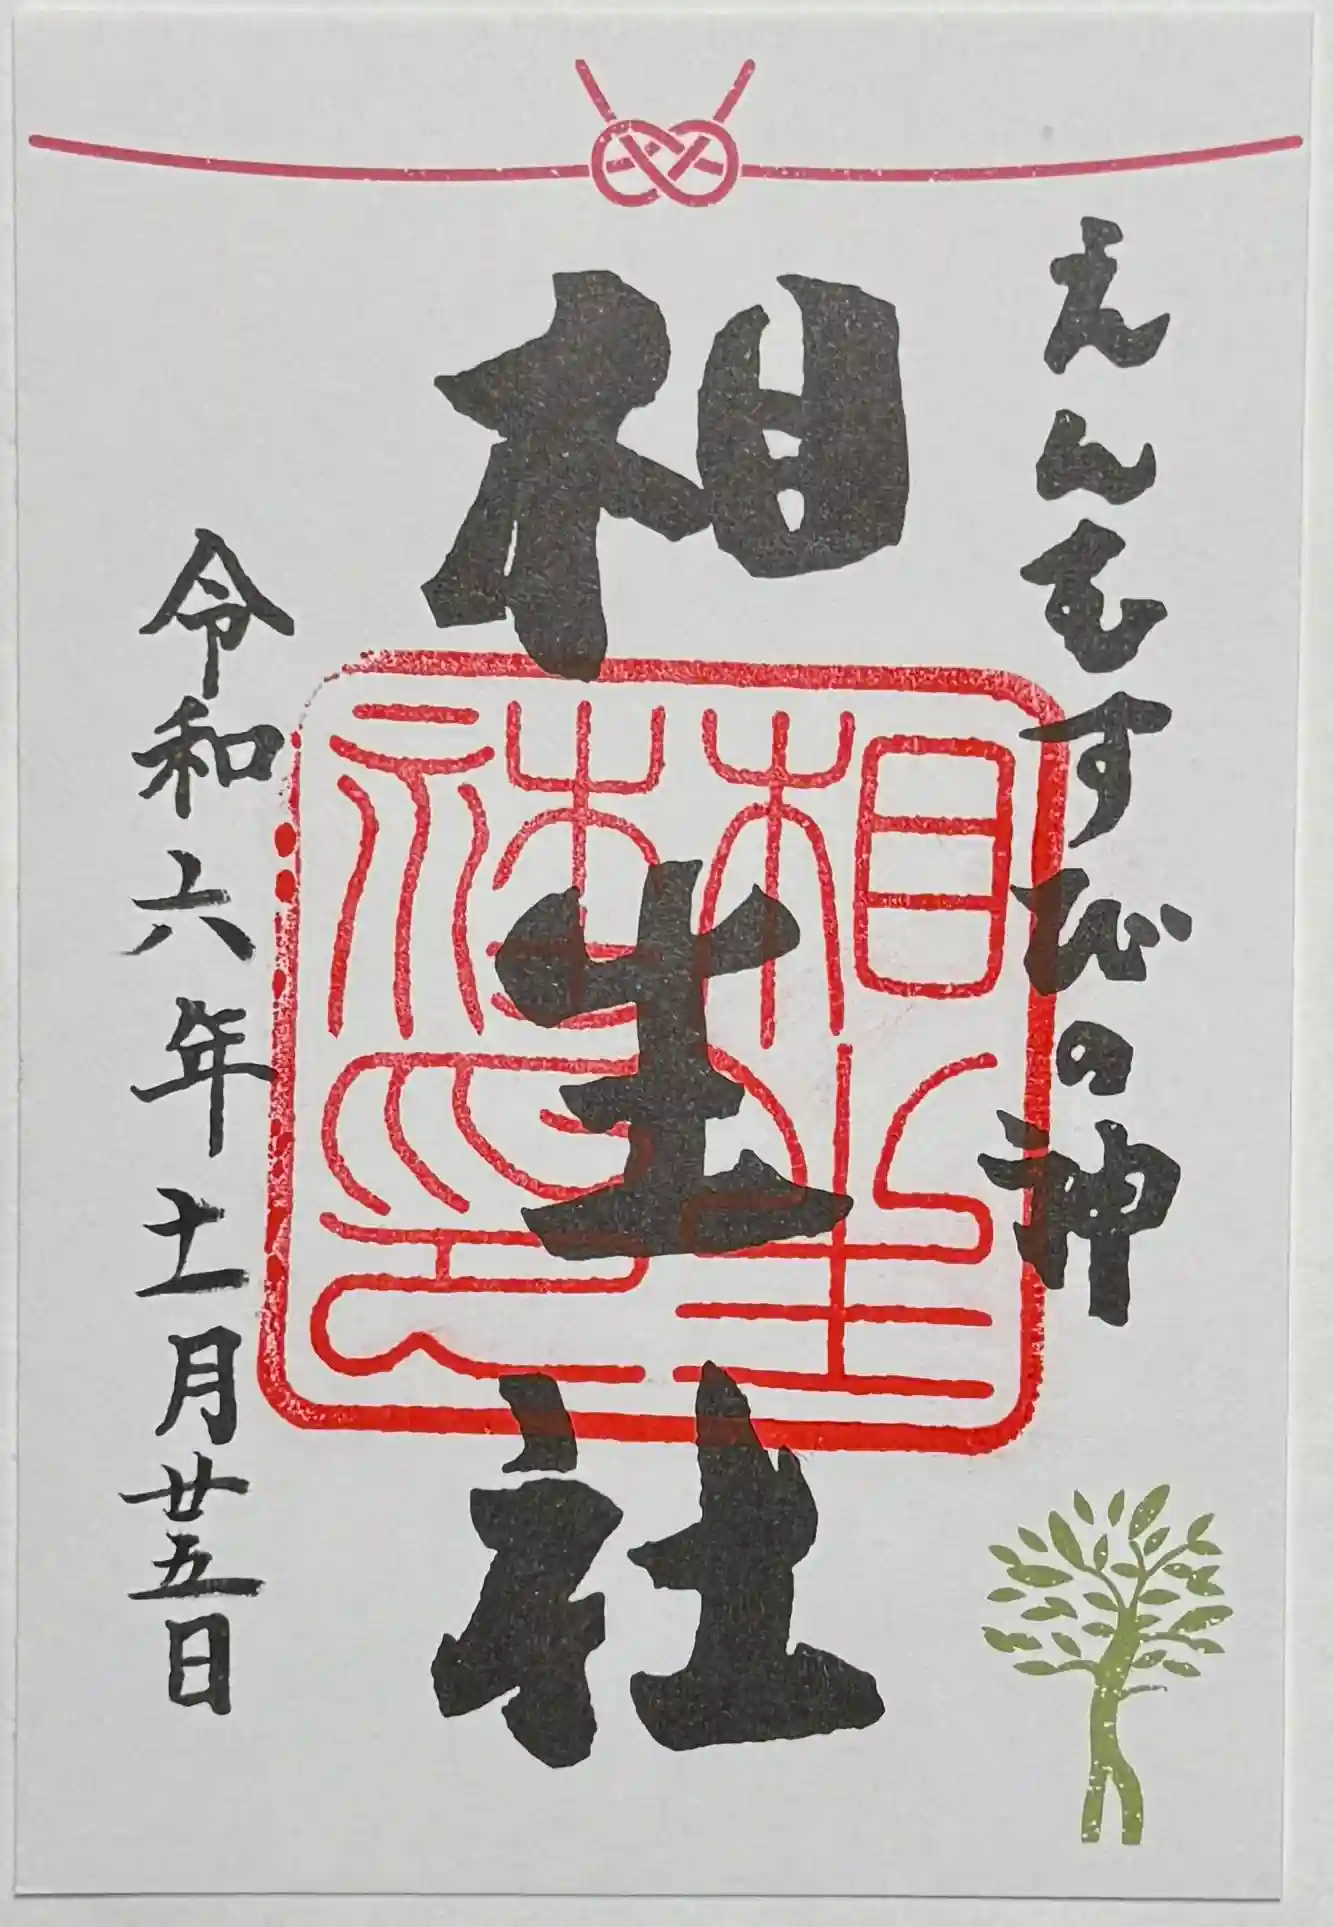 えんむすびの神
相生社
相生社神璽
令和六年十一月廿五日